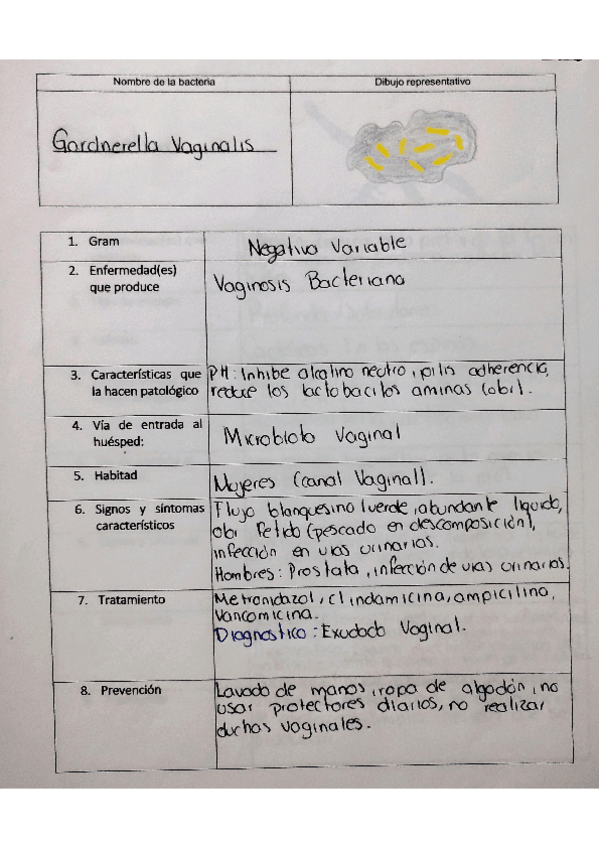 Nombre de la bacteria
Dibujo representativo
Gardnerella Vaginalis
1. Gram
Negativo Variable
2. Enfermedad(es)
que produce
Vaginosis Bacteriana
3. Características que
la hacen patológico
PH: Inhibe alcalino neutro, pilis adherencia,
reduce los lactobacilos aminas (olor).
4. Vía de entrada al
huésped:
Microbiota Vaginal
5. Habitad
Mujeres (canal Vaginal).
6. Signos y síntomas
característicos
Flujo blanquesino/verde, abundante liquido,
olor fetido (pescado en descomposición),
infección en vias urinarias.
Hombres: Prostata, infección de vias urinarias.
7. Tratamiento
Metronidazol, clindamicina, ampicilina,
Vancomicina.
Diagnostico: Exudado Vaginal.
8. Prevención
Lavado de manos, ropa de algodón, no
usar protectores diarios, no realizar
duchas vaginales.